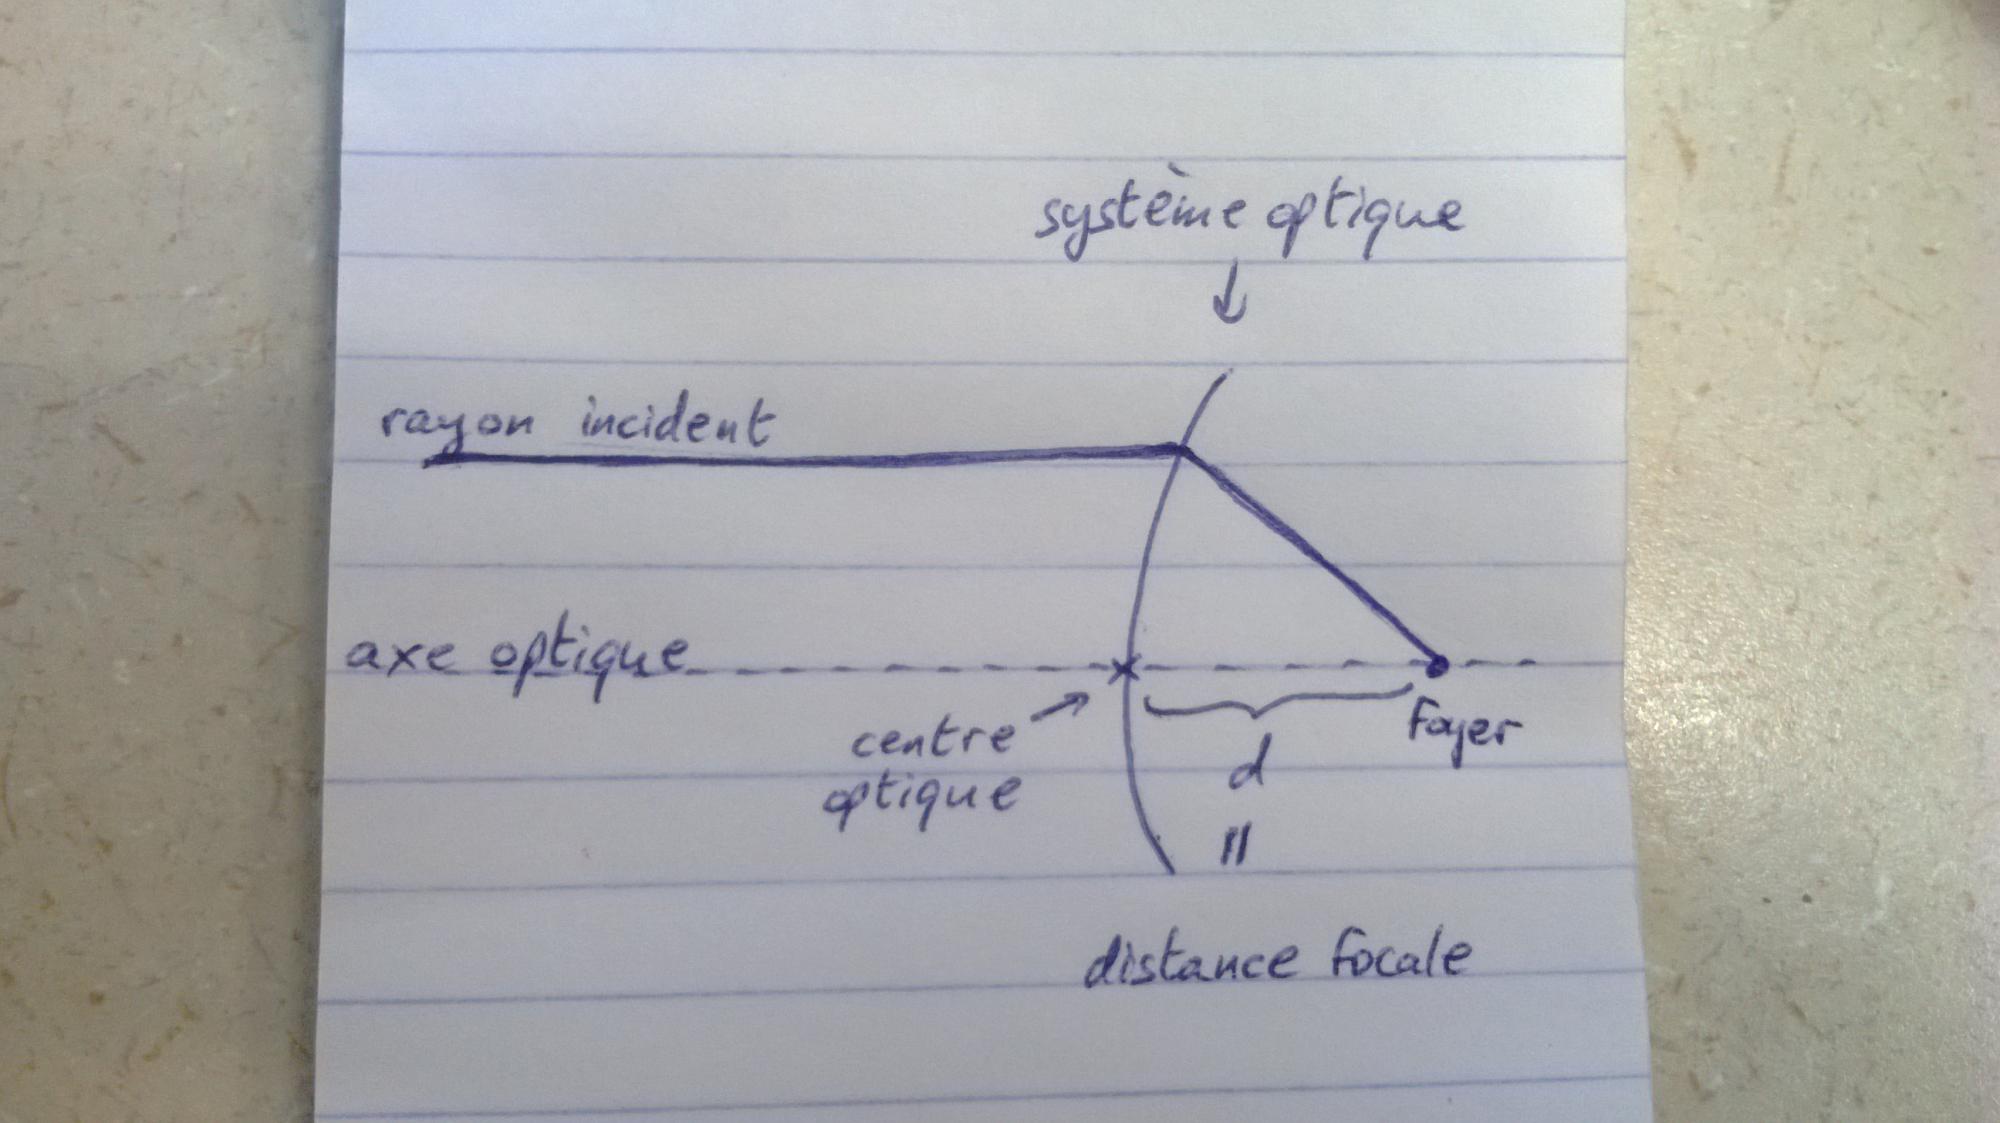 système optique
↓
rayon incident
axe optique
centre
optique
foyer
d
||
distance focale